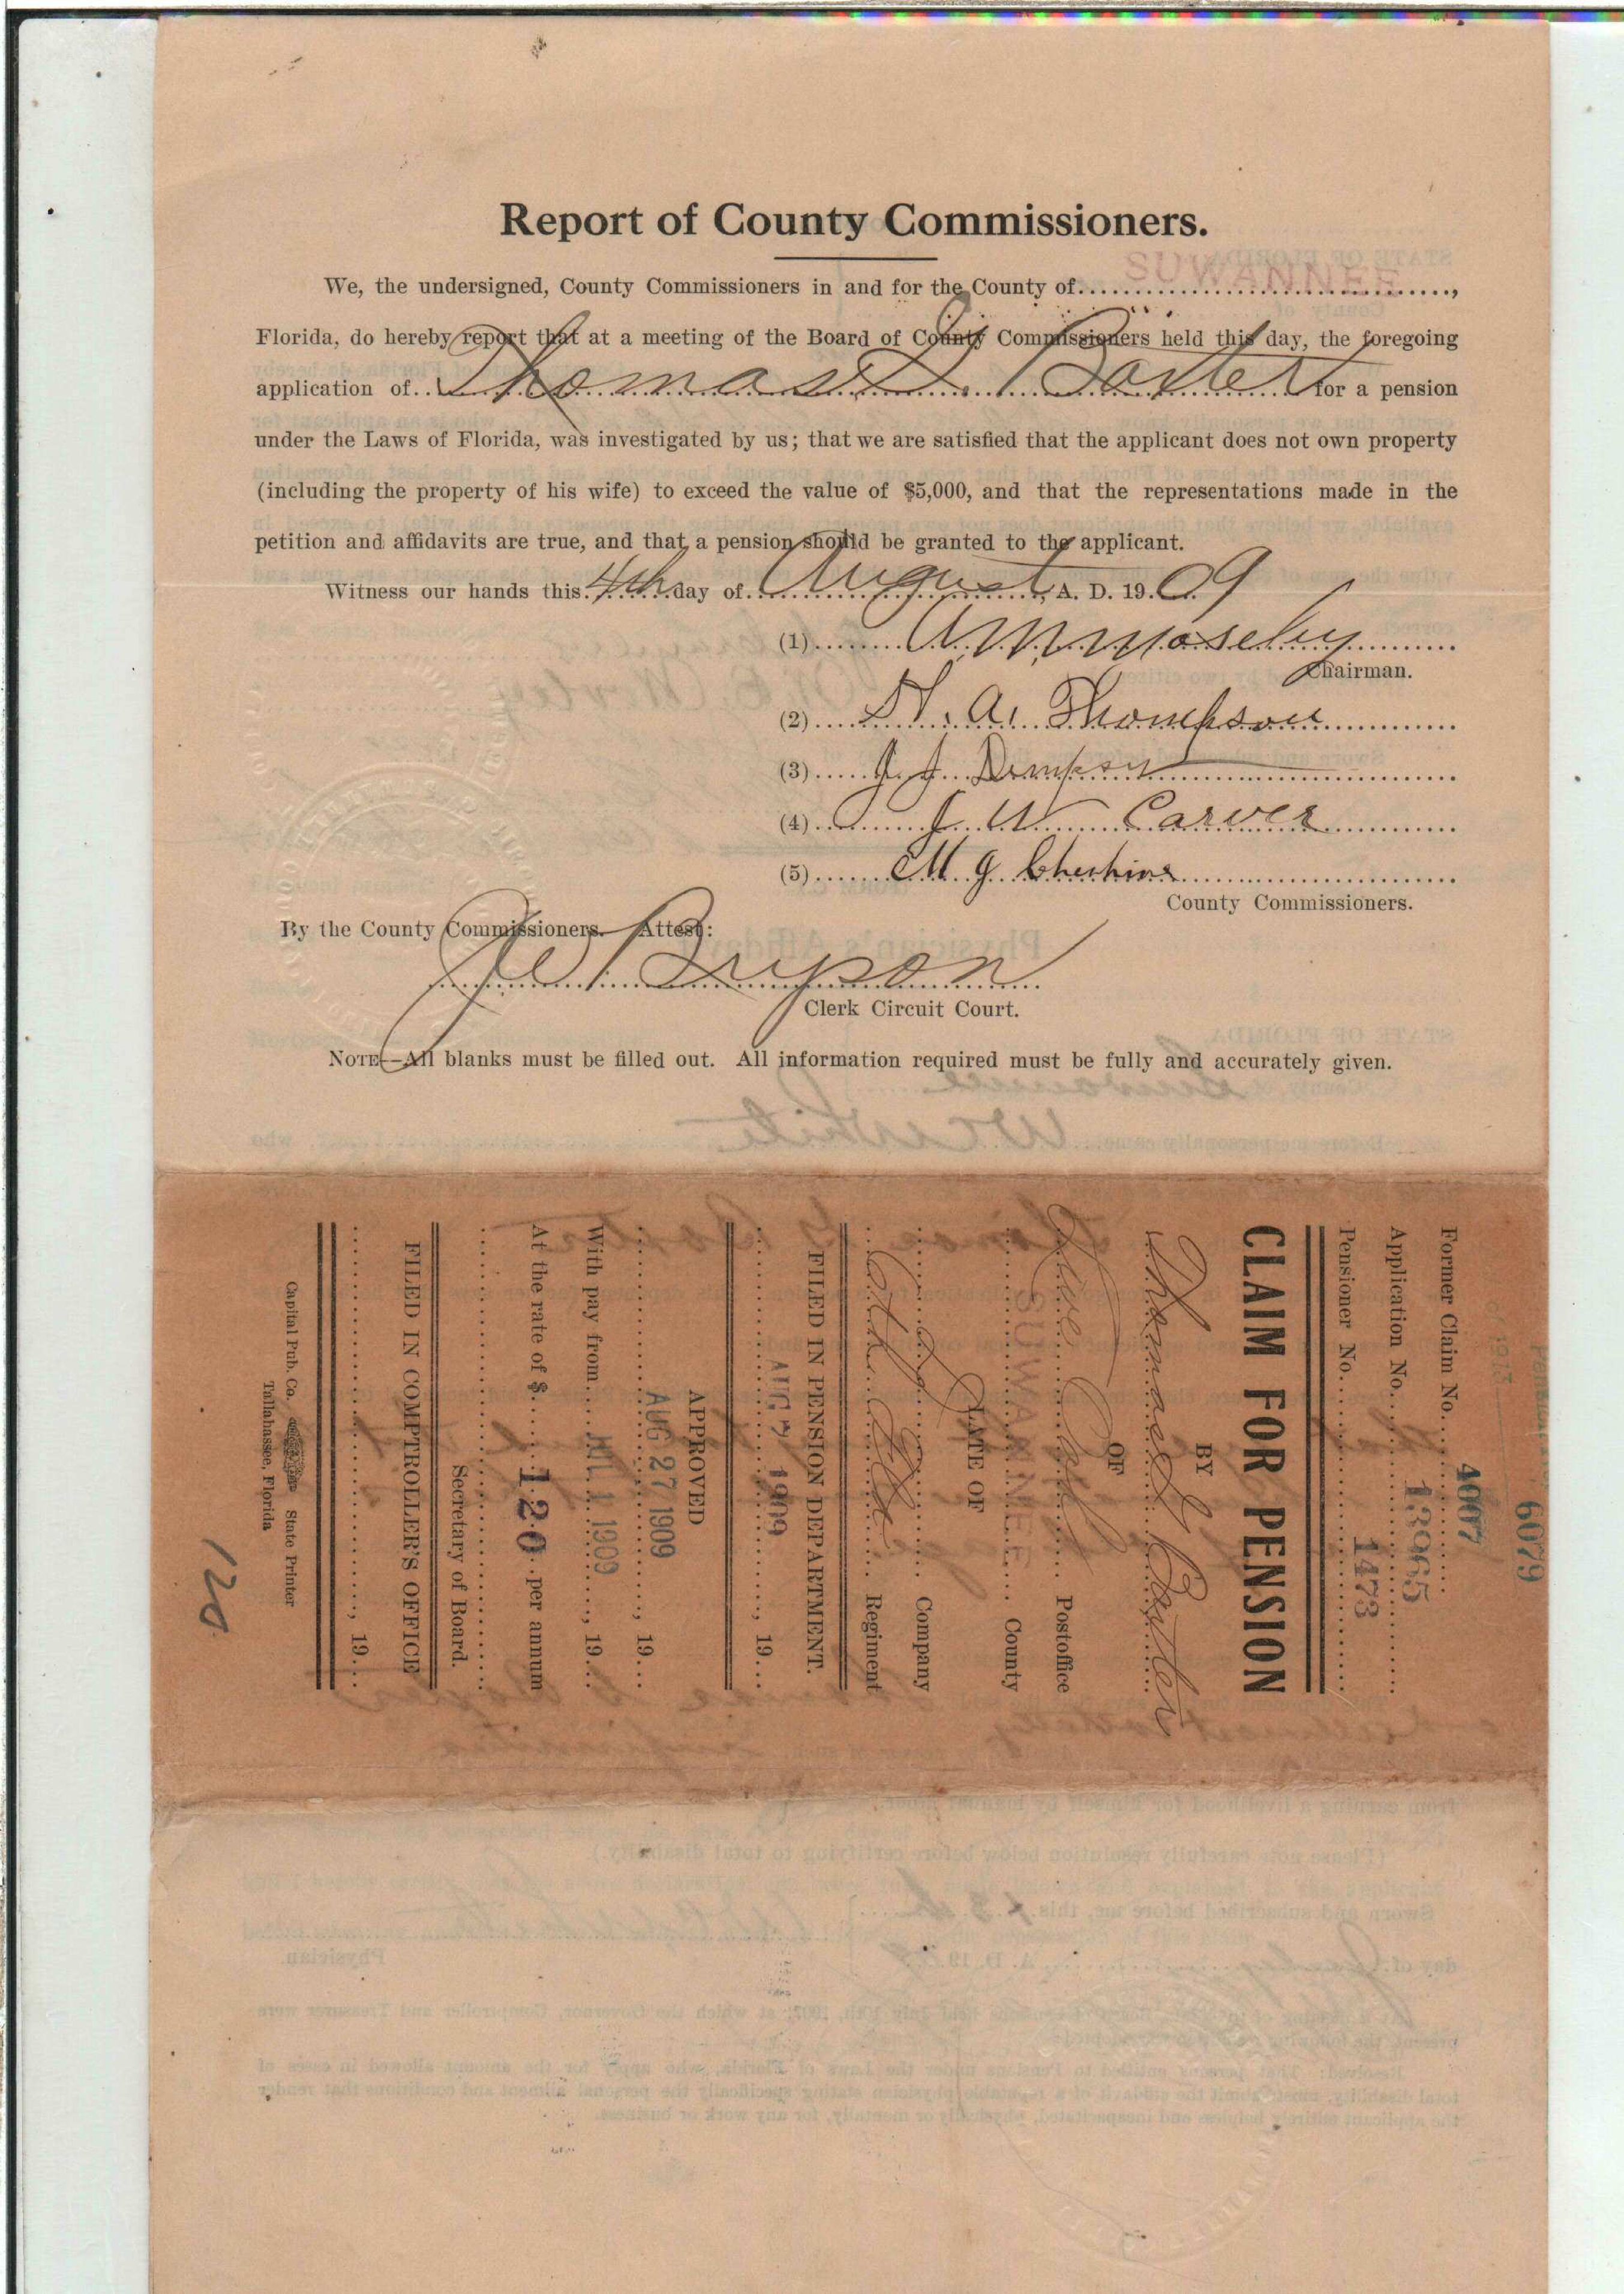 Report of County Commissioners.
We, the undersigned, County Commissioners in and for the County of SUWANNEE,
Florida, do hereby report that at a meeting of the Board of County Commissioners held this day, the foregoing
application of Thomas L. Baxter for a pension
under the Laws of Florida, was investigated by us; that we are satisfied that the applicant does not own property
(including the property of his wife) to exceed the value of $5,000, and that the representations made in the
petition and affidavits are true, and that a pension should be granted to the applicant.
Witness our hands this 4th day of August, A. D. 1909
(1) Moseley
Chairman.
(2) A. Thompson
(3) J. J.
(4) J W Carver
(5) M G Cheshire
County Commissioners.
By the County Commissioners. Attest:
J W Bryson
Clerk Circuit Court.
NOTE—All blanks must be filled out. All information required must be fully and accurately given.
6079
4007
Former Claim No.
Application No. 13965
Pensioner No. 1473
CLAIM FOR PENSION
BY
Thomas L Baxter
OF
Live Oak Postoffice
SUWANNEE County
LATE OF
Company
Regiment
FILED IN PENSION DEPARTMENT.
AUG 7 1909, 19
APPROVED
AUG 27 1909, 19
With pay from JUL 1 1909, 19
At the rate of $ 120 per annum
Secretary of Board.
FILED IN COMPTROLLER'S OFFICE
, 19
Capital Pub. Co. State Printer
Tallahassee, Florida
120